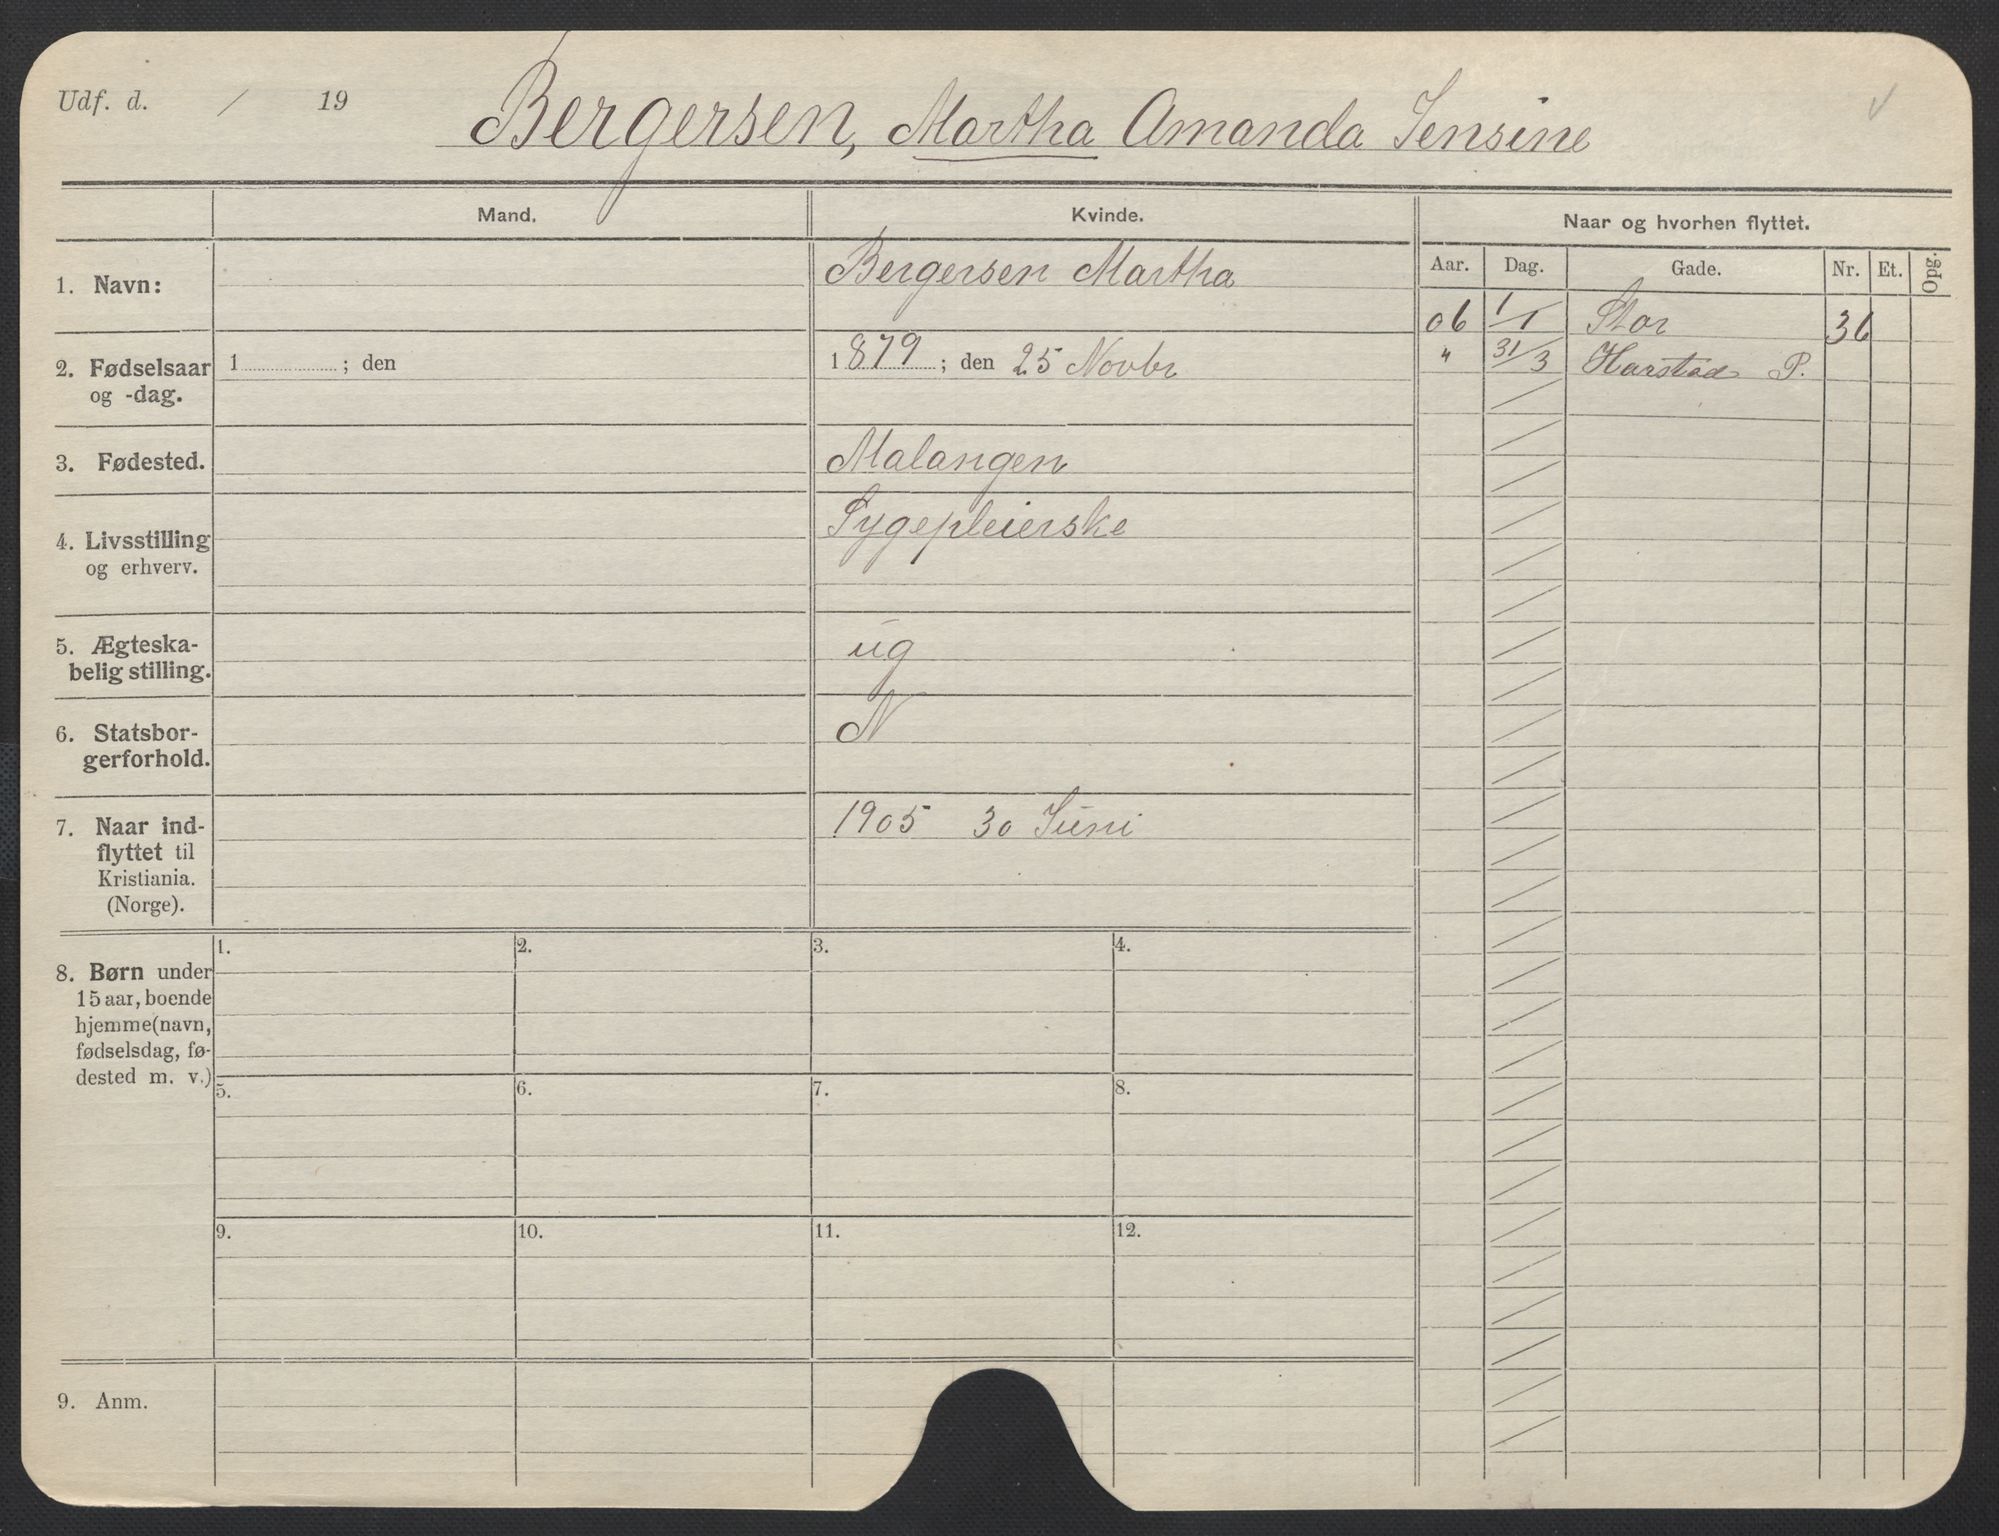 Udf. d. / 19
Bergersen, Martha Amanda Jensine
Mand. Kvinde. Naar og hvorhen flyttet.
Aar. Dag. Gade. Nr. Et. Opg.
1. Navn: Bergersen Martha
06 1/1 Stor 36
2. Fødselsaar 1 ; den 1879 ; den 25 Novbr
og -dag.
" 31/3 Harstad P.
3. Fødested. Malangen
4. Livsstilling Sygepleierske
og erhverv.
5. Ægteska-
belig stilling. ug
6. Statsbor-
gerforhold. N
7. Naar ind- 1905 30 Juni
flyttet til
Kristiania.
(Norge).
1. 2. 3. 4.
8. Børn under
15 aar, boende
hjemme (navn,
fødselsdag, fø-
dested m. v.)
5. 6. 7. 8.
9. 10. 11. 12.
9. Anm.